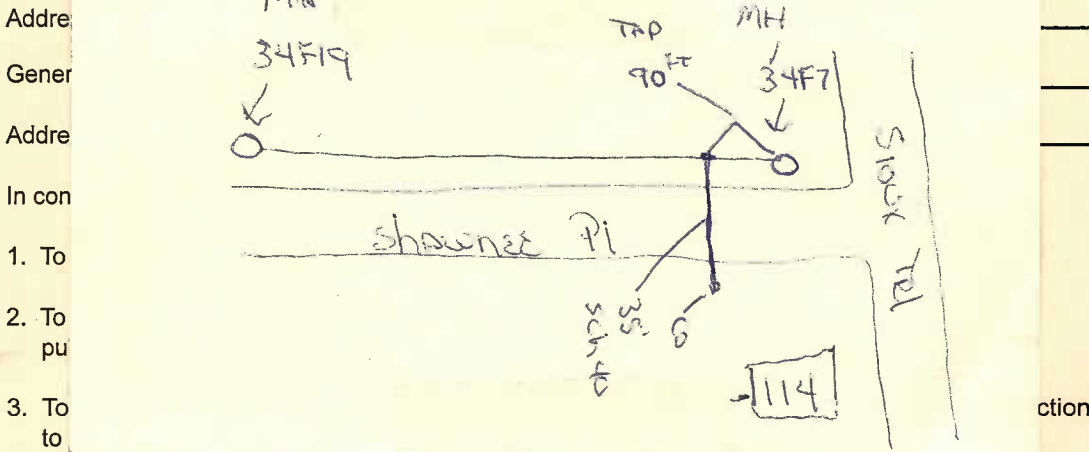 Addre
Gener
Addre
In con
1. To
2. To
pu
3. To
to
ction
MH
34F19
TAP
90 FT
MH
34F7
Shawnee Pl
Sioux Trl
35'
6
114